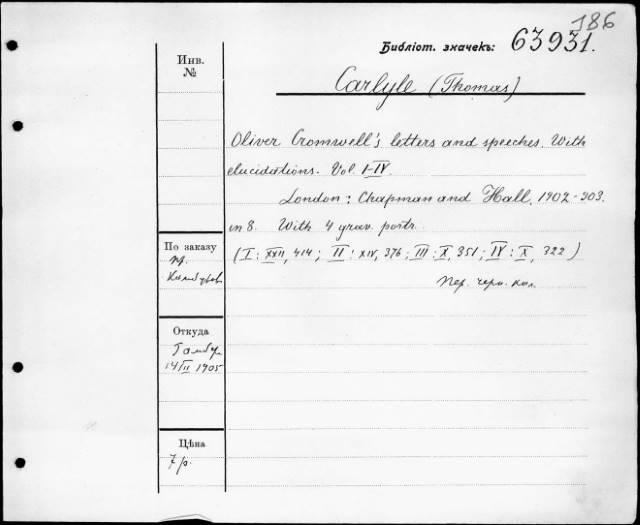 186
Библіот. значекъ: 63931.
Инв.
№
Carlyle (Thomas)
Oliver Cromwell's letters and speeches. With
elucidations. Vol. I-IV.
London: Chapman and Hall, 1902-903.
in 8. With 4 grav. portr.
(I: XXII, 414; II: XIV, 376; III: X, 351; IV: X, 322)
Пер. черн. кол.
По заказу
пр.
Откуда
14/II 1905
Цѣна
7 р.